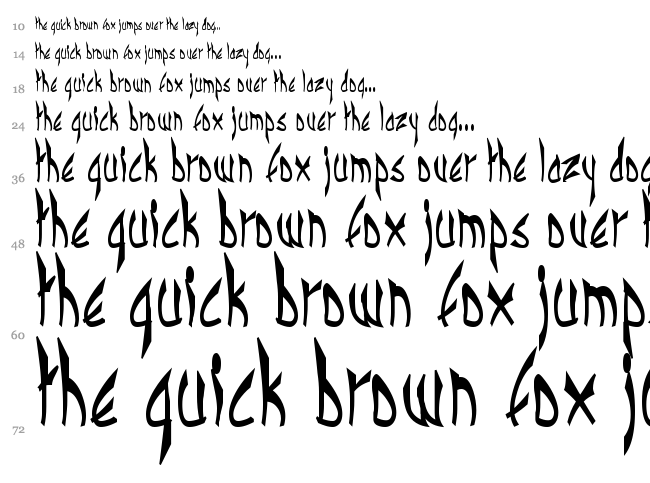 10 the quick brown fox jumps over the lazy dog...
14 the quick brown fox jumps over the lazy dog...
18 the quick brown fox jumps over the lazy dog...
24 the quick brown fox jumps over the lazy dog...
36 the quick brown fox jumps over the lazy dog
48 the quick brown fox jumps over t
60 the quick brown fox jump
72 the quick brown fox j